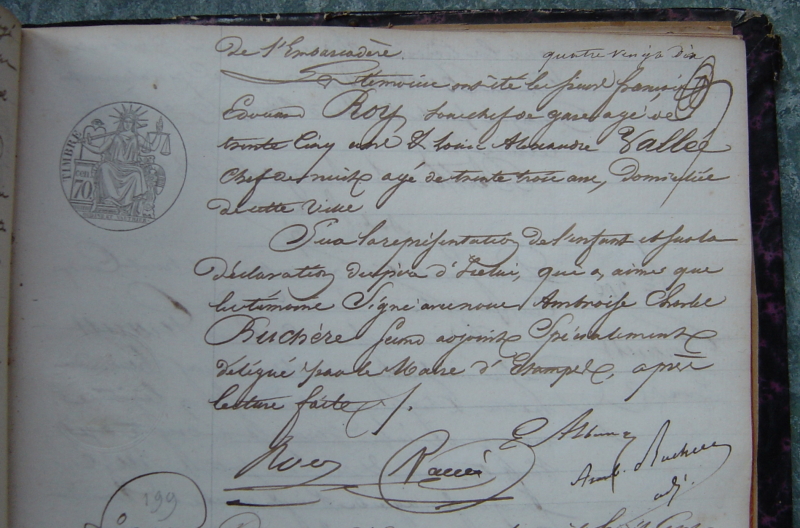 de l'Embarcadère. quatre vingt dix
Les témoins ont été les sieurs françois
Edouard Roy sous chef de gare agé de
trente cinq ans & Louis Alexandre Vallée
chef de nuit agé de trente trois ans, domiciliés
de cette ville
Sur la représentation de l'enfant et sur la
déclaration du père d'icelui, qui a, ainsi que
les témoins signé avec nous Ambroise Charles
Buchère second adjoint spécialement
délégué par le Maire d'Etampes, après
lecture faite /.
TIMBRE
70
Roy Vallée
Buchère
adj.
199